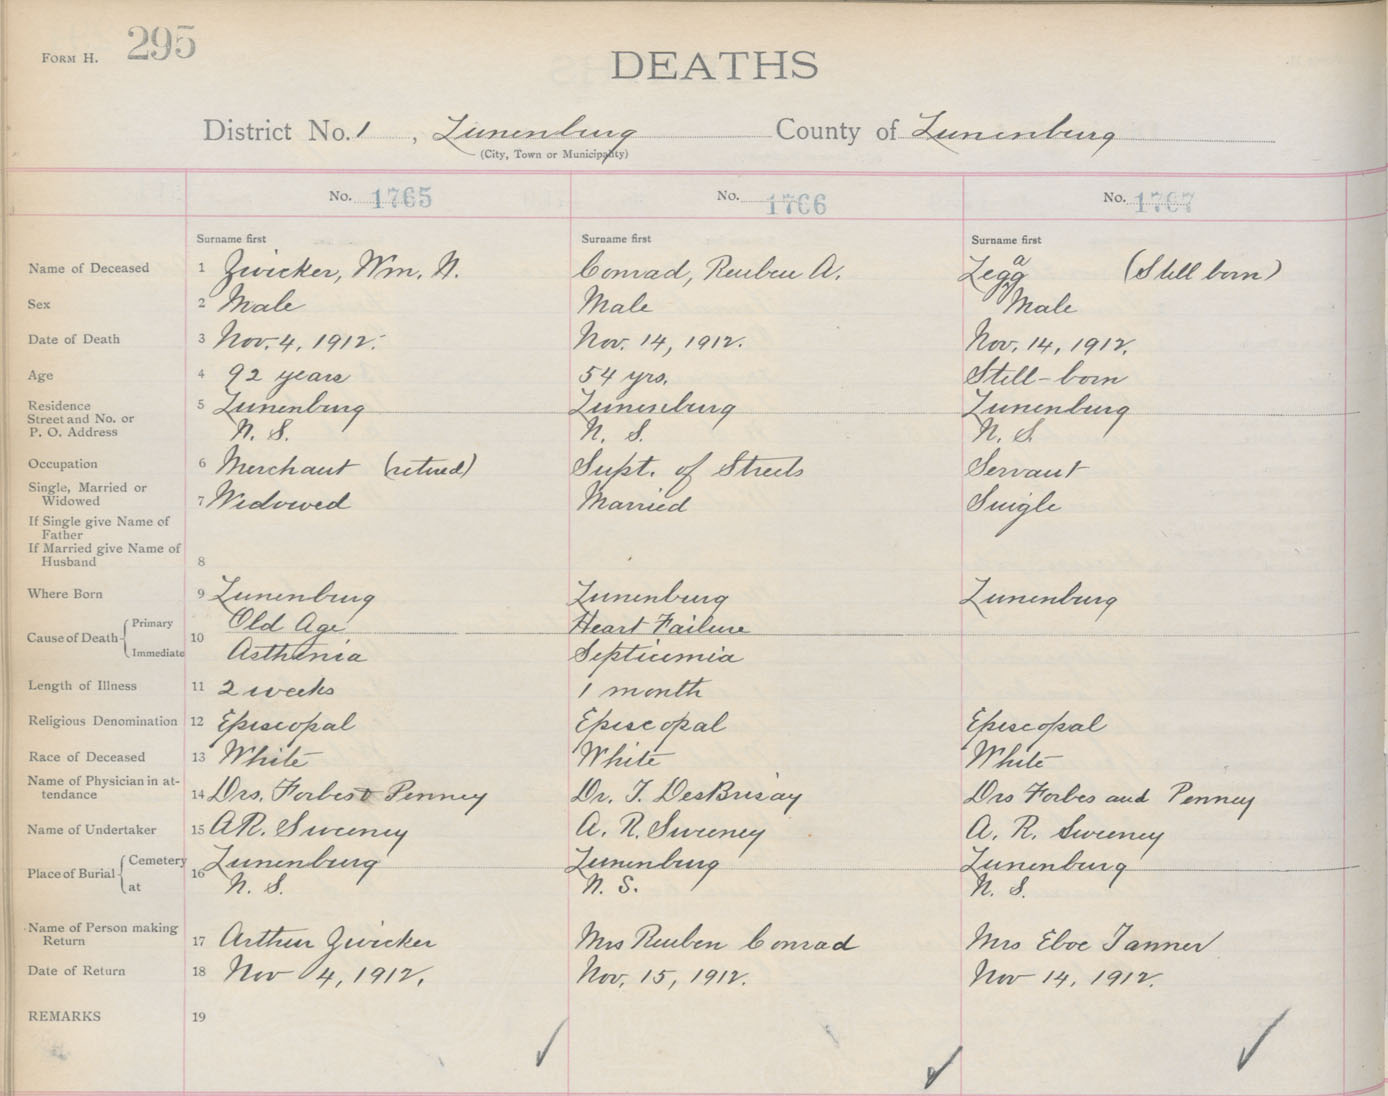 FORM H. 295
DEATHS
District No. 1 , Lunenburg County of Lunenburg
(City, Town or Municipality)
No. 1765 No. 1766 No. 1767
Surname first Surname first Surname first
Name of Deceased 1 Zwicker, Wm. N. Conrad, Reuben A. Legg (Still born)
Sex 2 Male Male Male
Date of Death 3 Nov. 4, 1912. Nov. 14, 1912. Nov. 14, 1912.
Age 4 92 years 54 yrs. Still-born
Residence 5 Lunenburg Lunenburg Lunenburg
Street and No. or
P. O. Address N. S. N. S. N. S.
Occupation 6 Merchant (retired) Supt. of Streets Servant
Single, Married or
Widowed 7 Widowed Married Single
If Single give Name of
Father
If Married give Name of
Husband 8
Where Born 9 Lunenburg Lunenburg Lunenburg
Cause of Death 10 Primary Old Age Heart Failure
Immediate Asthenia Septicemia
Length of Illness 11 2 weeks 1 month
Religious Denomination 12 Episcopal Episcopal Episcopal
Race of Deceased 13 White White White
Name of Physician in at-
tendance 14 Drs. Forbes & Penney Dr. T. DesBrisay Drs Forbes and Penney
Name of Undertaker 15 A R. Sweeney A. R. Sweeney A. R. Sweeney
Place of Burial 16 Cemetery Lunenburg Lunenburg Lunenburg
at N. S. N. S. N. S.
Name of Person making
Return 17 Arthur Zwicker Mrs Reuben Conrad Mrs Tanner
Date of Return 18 Nov 4, 1912. Nov. 15, 1912. Nov 14, 1912.
REMARKS 19